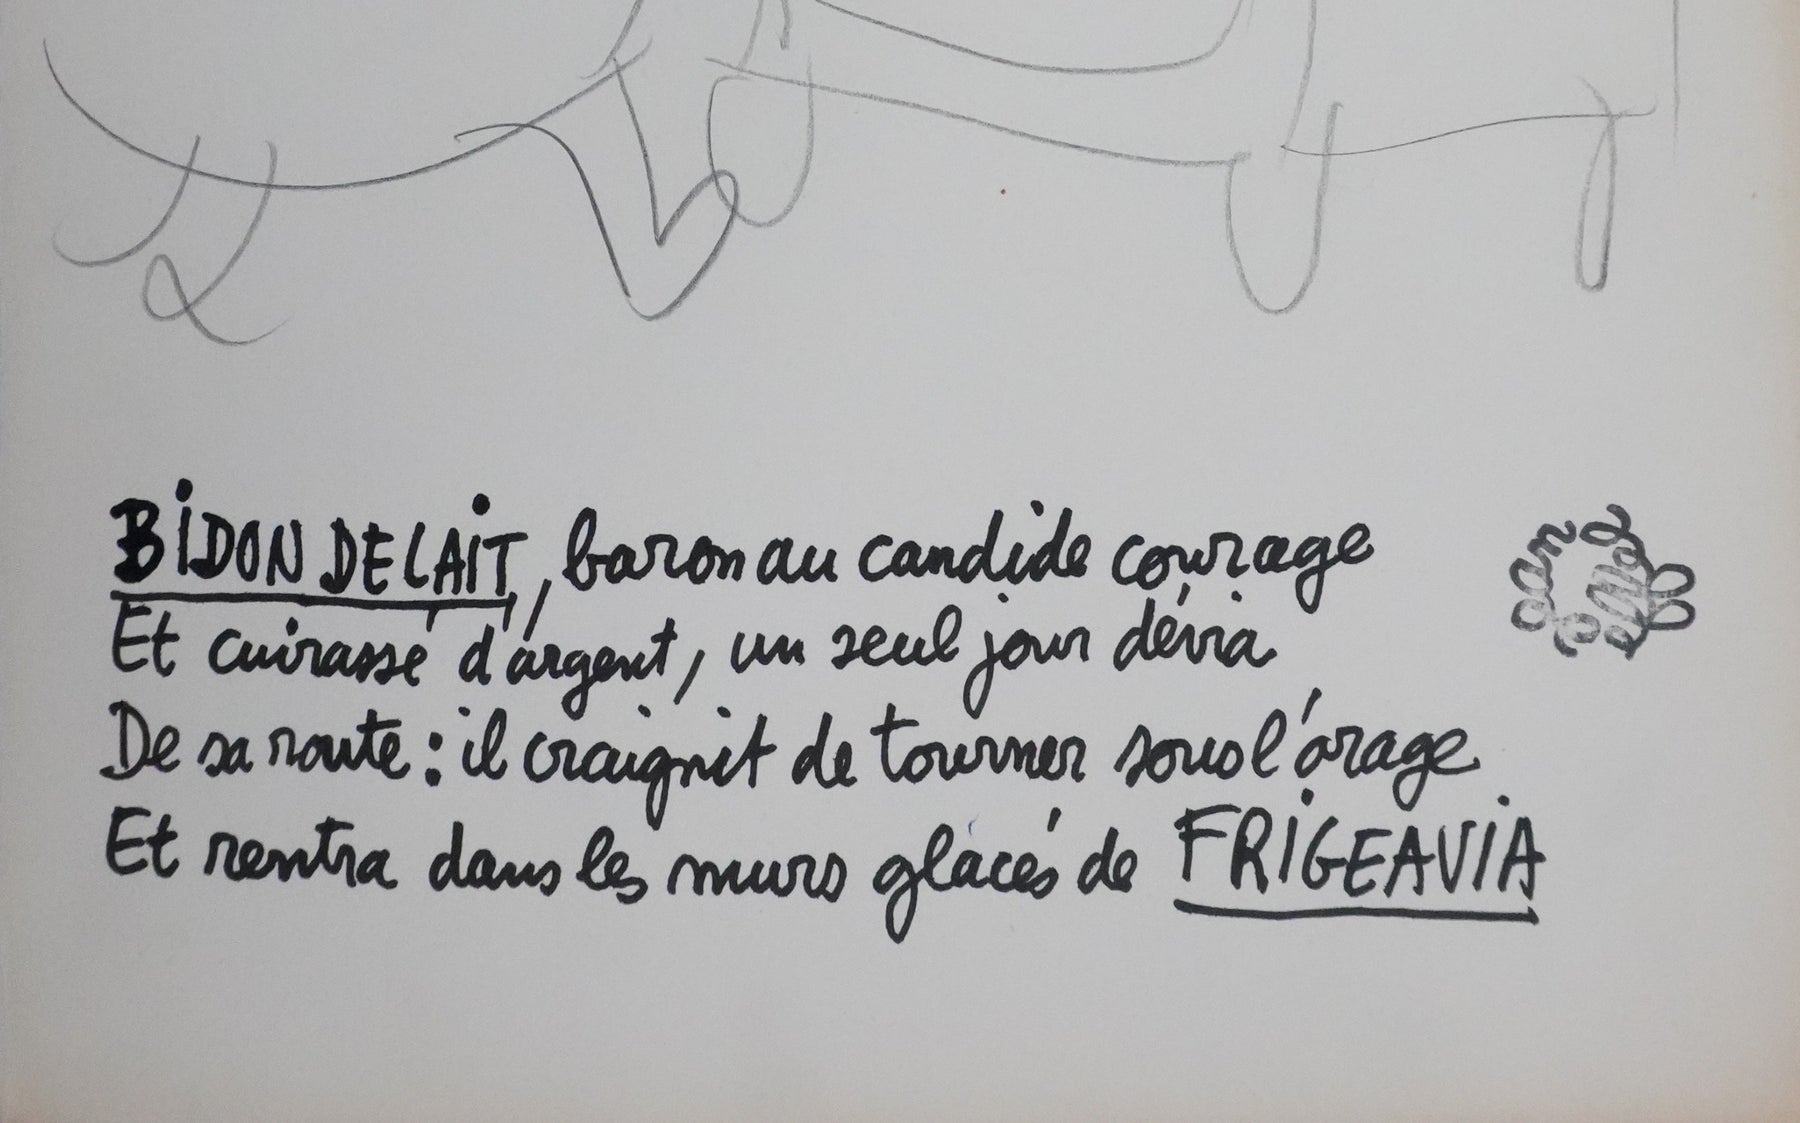 BIDON DE LAIT, baron au candide courage
Et cuirassé d'argent, un seul jour dévia
De sa route : il craignit de tourner sous l'orage
Et rentra dans les murs glacés de FRIGEAVIA